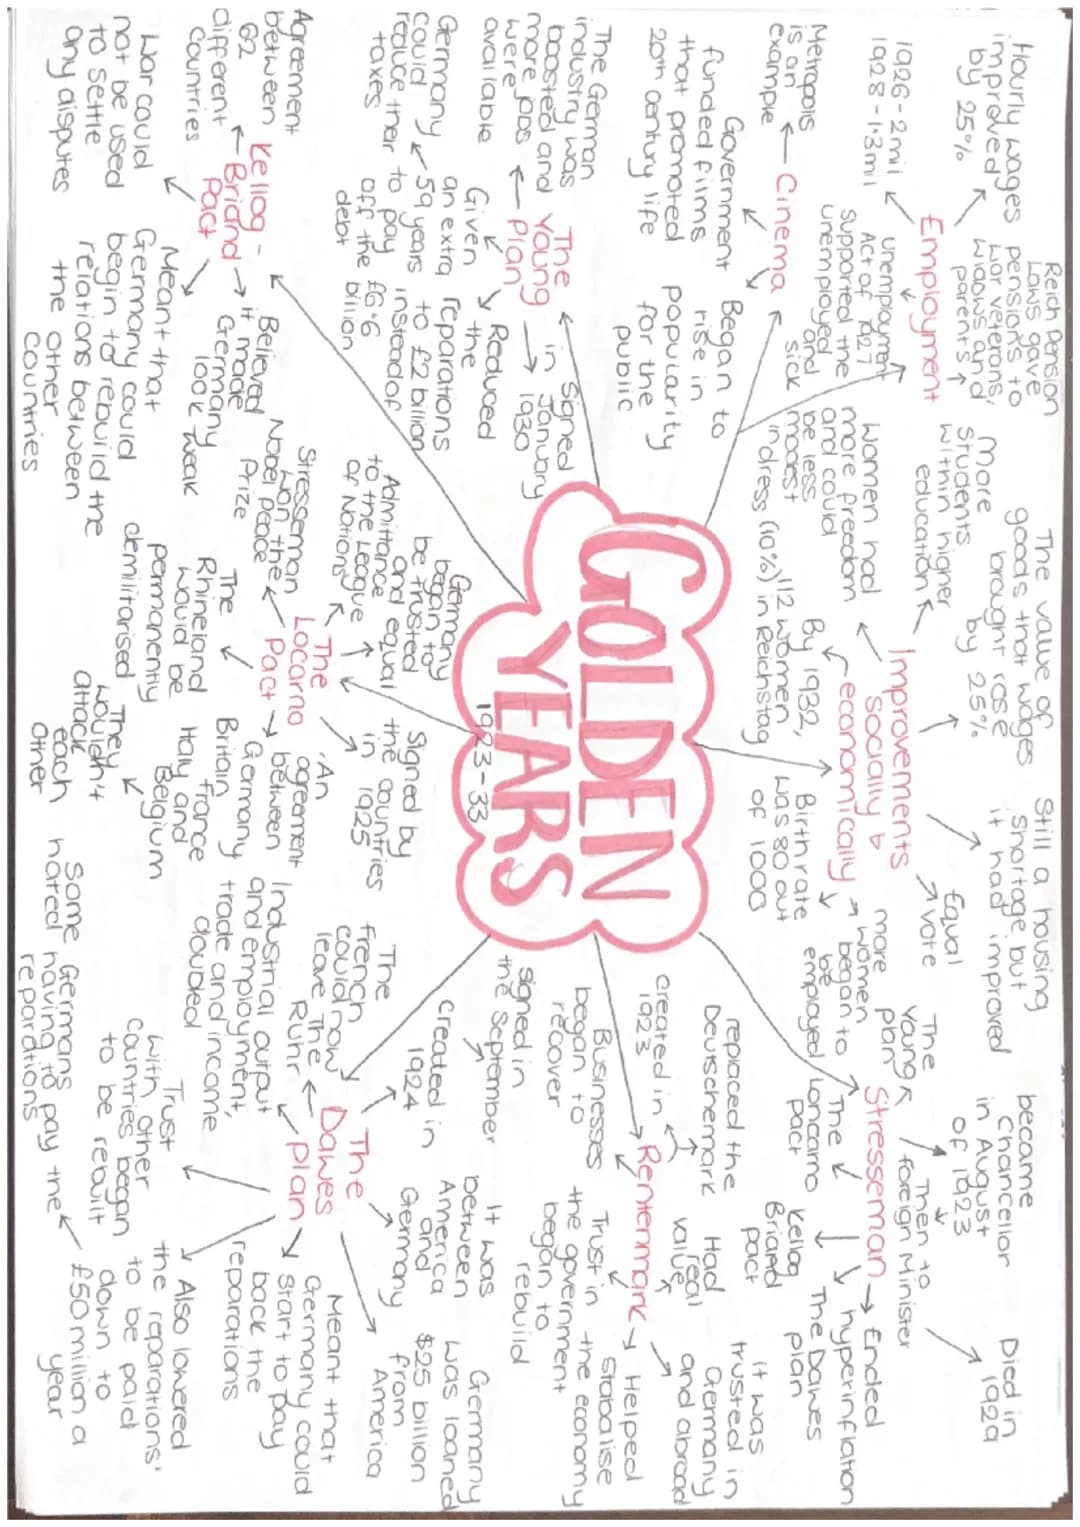 GOLDEN
YEARS
1923-33
Employment
Hourly wages
improved
by 25%
1926 - 2 mil
1928 - 1.3 mil
Unemployment
Act of 1927
supported the
unemployed and
sick
Reich Pension
Laws gave
pensions to
war veterans,
widows and
parents
Cinema
Metropolis
is an
example
Government
funded films
that promoted
20th century life
Began to
rise in
popularity
for the
public
The
Young
Plan
The German
industry was
boosted and
more jobs
were
available
Given
an extra
59 years
to pay
off the
debt
Germany
could
reduce their
taxes
Reduced
the
reparations
to £2 billion
instead of
£6.6
billion
Signed
in
January
1930
Kellog -
Briand
Pact
Agreement
between
62
different
countries
War could
not be used
to settle
any disputes
Meant that
Germany could
begin to rebuild the
relations between
the other
countries
Believed
it made
Germany
look weak
The
Locarno
Pact
Stresseman
won the
Nobel peace
Prize
Admittance
to the League
of Nations
Germany
began to
be trusted
and equal
Signed by
the countries
in 1925
An
agreement
between
Germany
Britain
France
Italy and
Belgium
They
wouldn't
attack
each
other
The
Rhineland
would be
permanently
demilitarised
Improvements
socially &
economically
Women had
more freedom
and could
be less
modest
in dress
More
students
within higher
education
The value of
goods that wages
brought rose
by 25%
Still a housing
shortage but
it had improved
Equal
vote
more
women
began to
be
employed
Birthrate
was 80 out
of 1000
By 1932,
112 women
(10%) in Reichstag
Stresseman
became
Chancellor
in August
of 1923
Then to
foreign Minister
Died in
1929
Ended
hyperinflation
The Dawes
plan
Kellog
Briand
pact
The
Loncarno
pact
The
Young
plan
Rentenmark
replaced the
Deutschemark
created in
1923
Businesses
began to
recover
Trust in
the government
began to
rebuild
Helped
stabalise
the economy
It was
trusted in
Germany
and abroad
Had
real
value
The
Dawes
Plan
created in
1924
signed in
the September
It was
between
America
and
Germany
Germany
was loaned
$25 billion
from
America
Meant that
Germany could
start to pay
back the
reparations
Also lowered
the reparations'
to be paid
down to
£50 million a
year
Some Germans
hated having to pay the
reparations
Trust
with other
countries began
to be rebuilt
Industrial output
and employment,
trade and income
doubled
The
french
could now
leave The
Ruhr